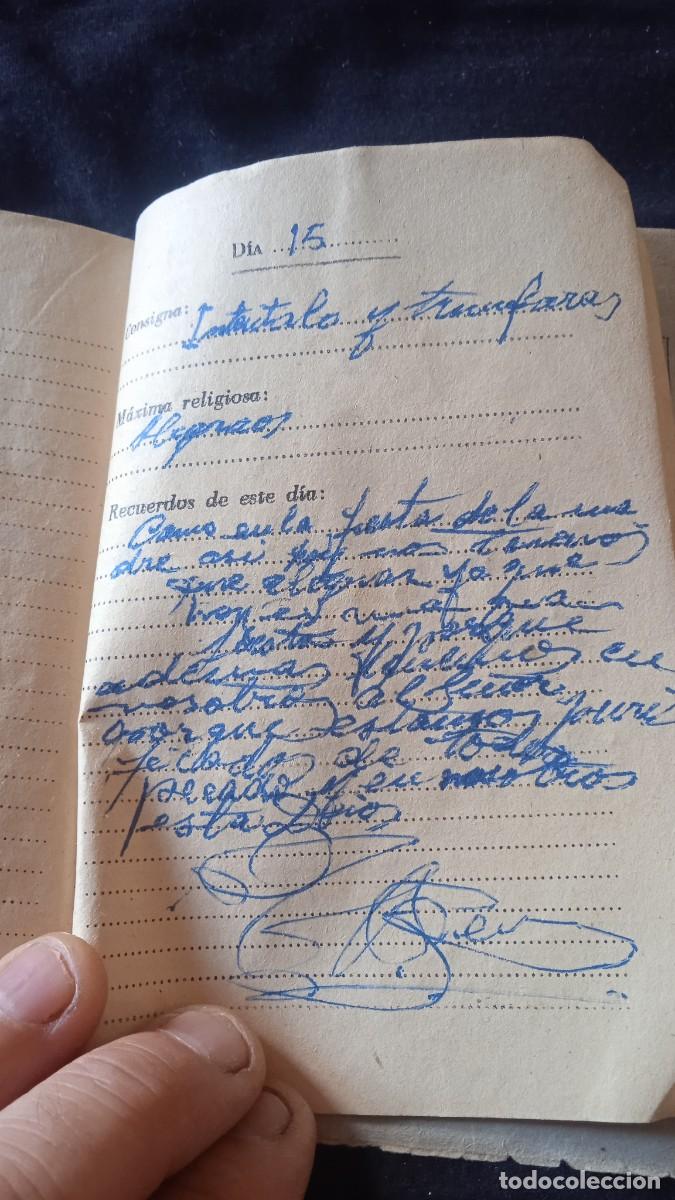 Día 15
Consigna: Intentalo y triunfaras
Máxima religiosa:
Alegraos
Recuerdos de este día:
Como en la fiesta de la ma
dre asi hoy nos tenemos
que alegrar ya que
hoy es una gran
fiesta y porque
ademas en
nosotros al Señor
porque estamos puri
ficados de todo
pecado y en nosotros
esta Dios
todocoleccion